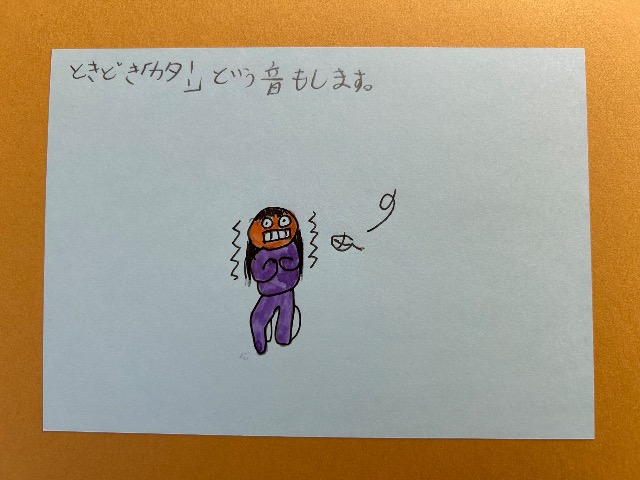 ときどき「カタ!」という音もします。